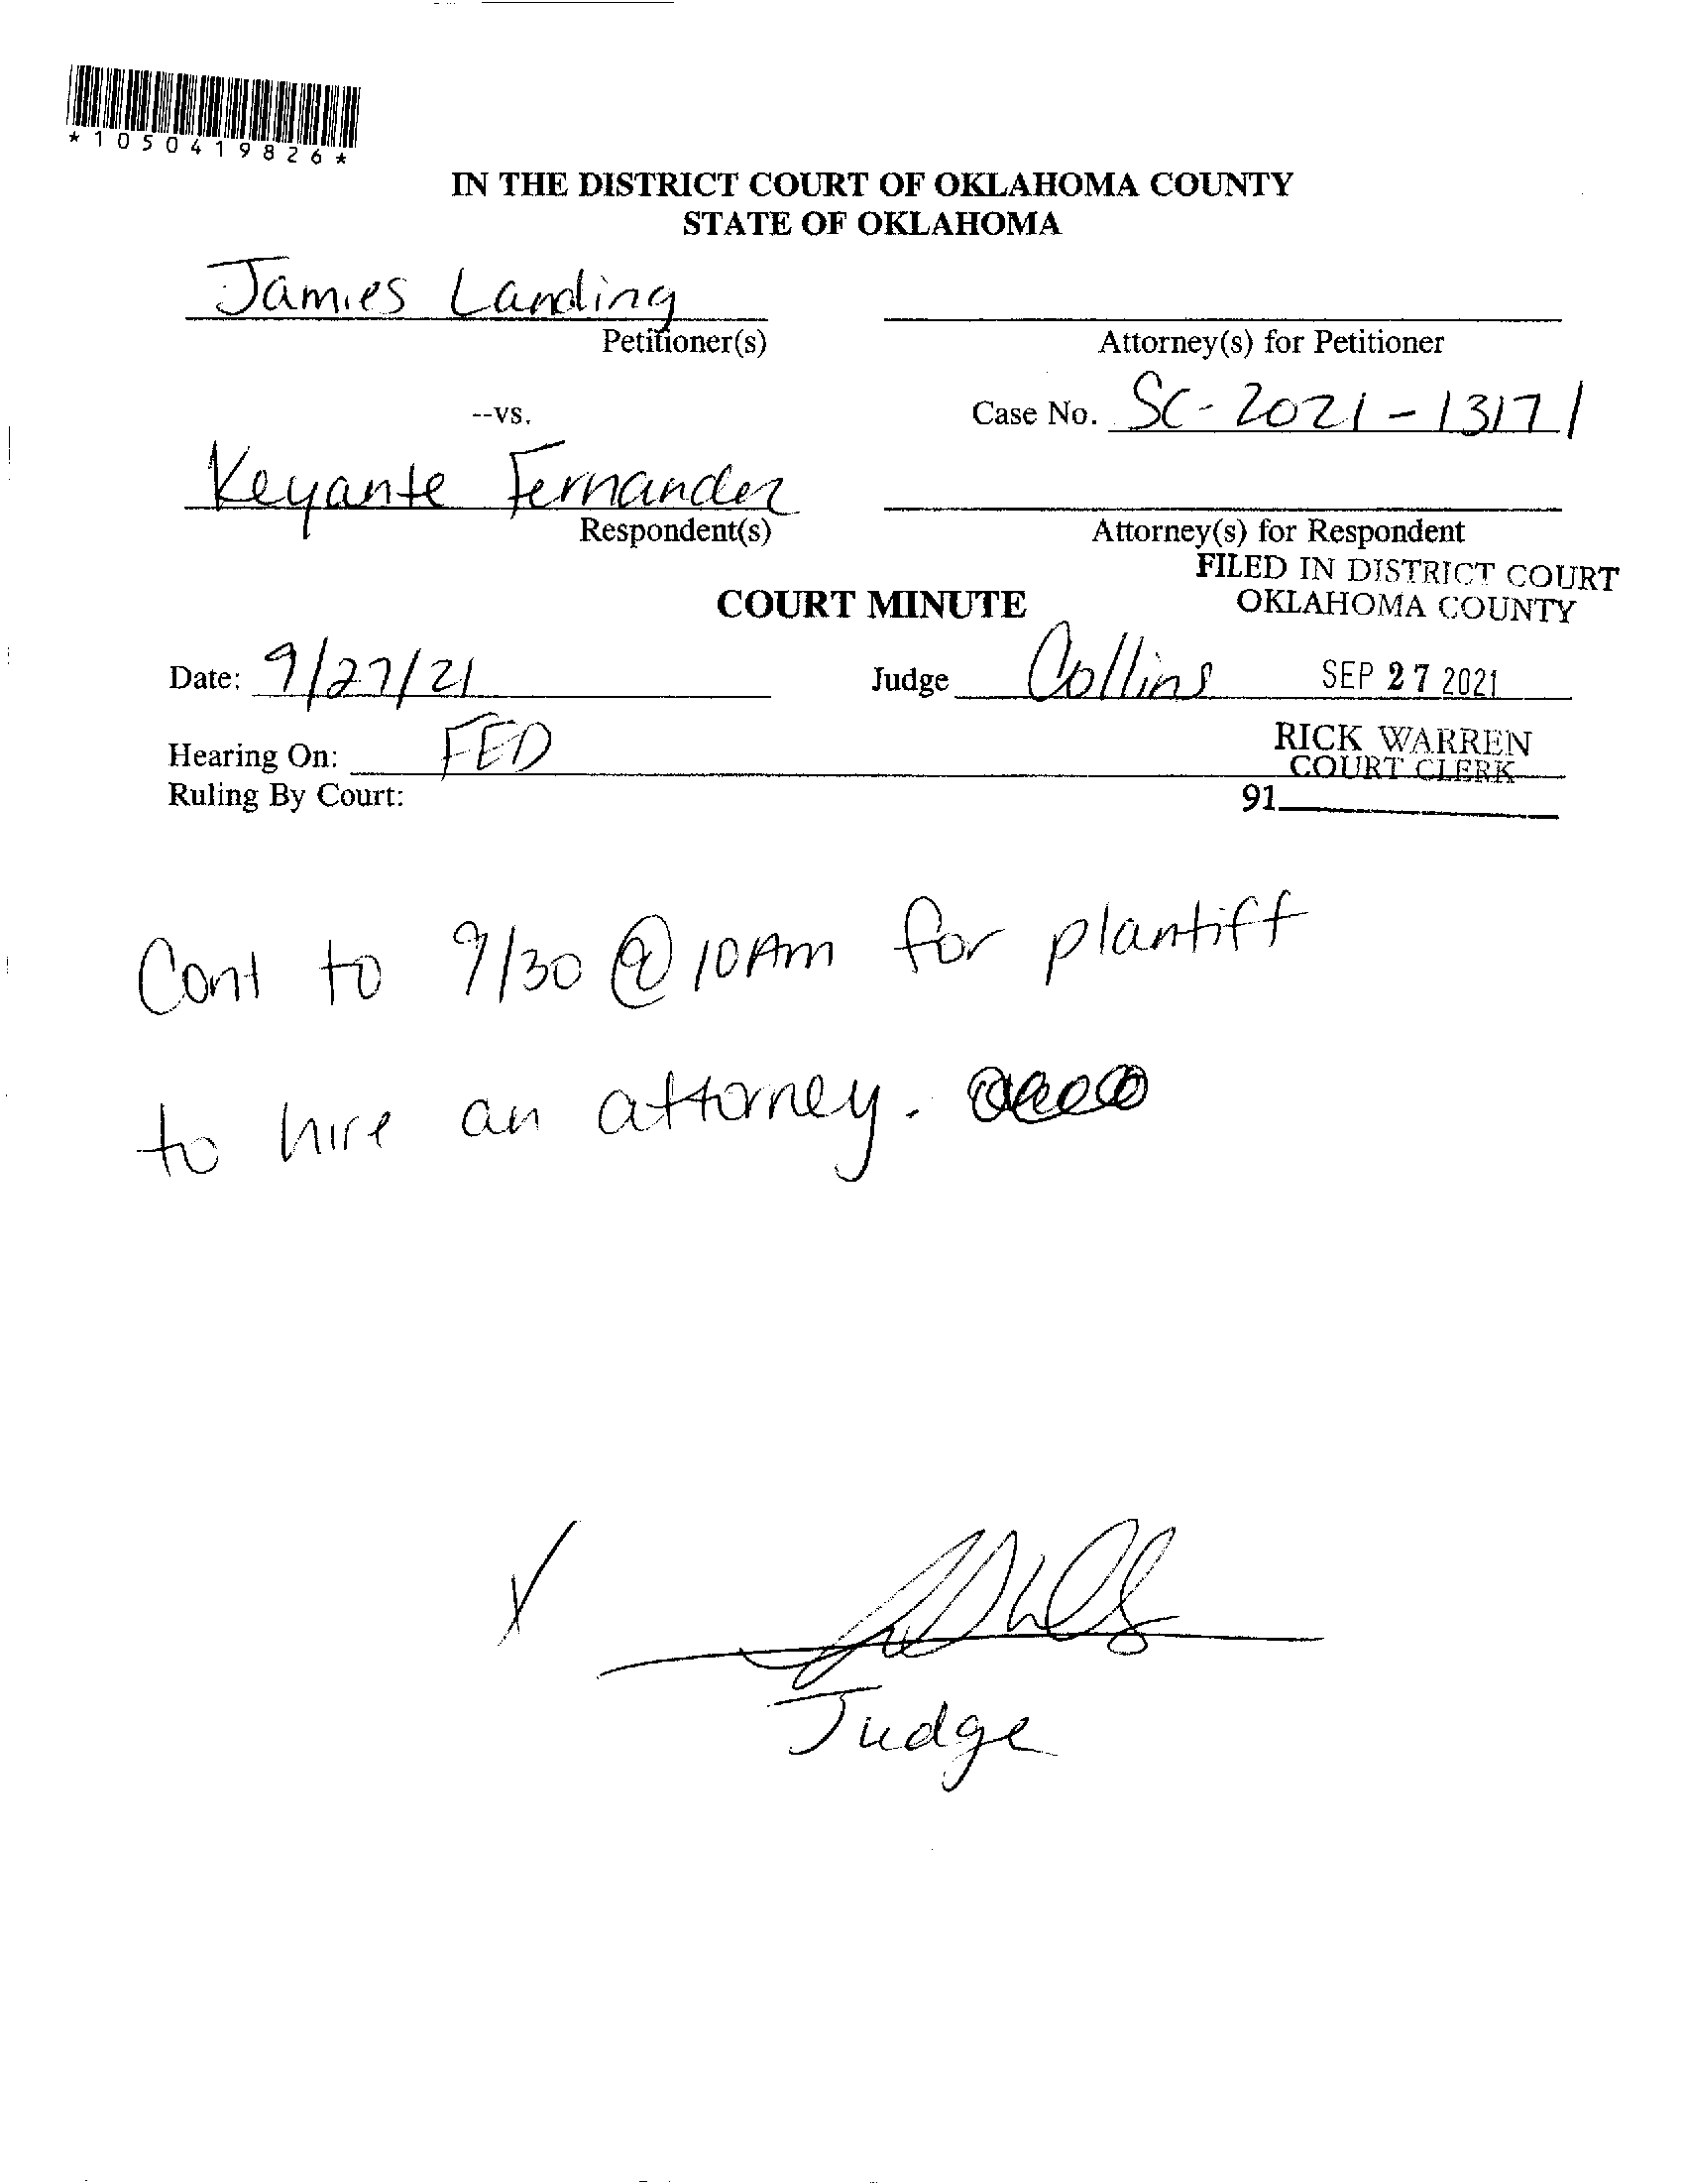 *1050419826*
IN THE DISTRICT COURT OF OKLAHOMA COUNTY
STATE OF OKLAHOMA
James Landing
Petitioner(s)
Attorney(s) for Petitioner
--vs.
Case No. SC-2021-13171
Keyante Fernandez
Respondent(s)
Attorney(s) for Respondent
FILED IN DISTRICT COURT
OKLAHOMA COUNTY
COURT MINUTE
Date: 9/27/21
Judge Collins
SEP 27 2021
Hearing On: FED
RICK WARREN
COURT CLERK
Ruling By Court:
91
Cont to 9/30 @ 10AM for plantiff
to hire an attorney.
X
Judge